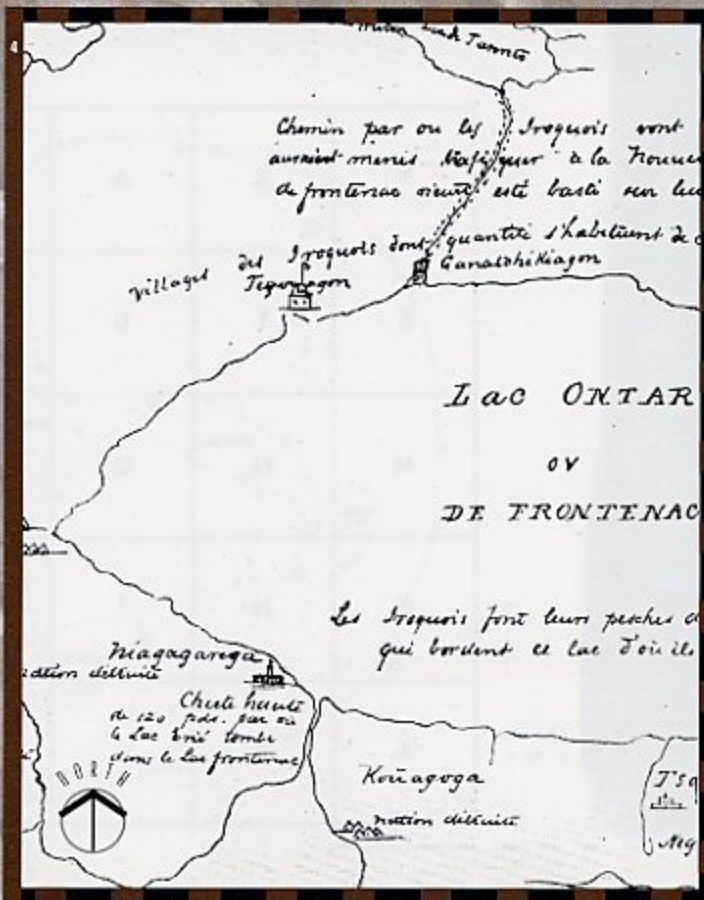 4
Chemin par ou les Iroquois vont
auraient menés trafiquer à la
de frontenac n'eut esté basti sur
villages des Iroquois dont quantité s'habituent de
Ganatchikiagon
LAC ONTAR
OV
DE FRONTENAC
Les Iroquois font leurs pesches
qui bordent ce lac d'où ils
Niagagarega
nation détruite
Chute haute
de 120 pds. par où
le Lac Erié tombe
dans le Lac frontenac
NORTH
Koüagoga
nation détruite